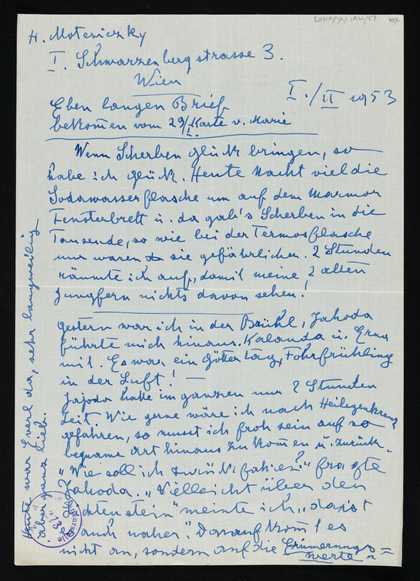 H. Motesiczky
I. Schwarzenbergstrasse 3.
Wien
I./II 1953
Eben langen Brief
bekommen vom 29/I. Karte v. Marie
Wenn Scherben Glück bringen, so
habe ich Glück. Heute Nacht viel die
Sodawasserflasche um auf dem Marmor
Fensterbrett u. da gab's Scherben in die
Tausende, so wie bei der Termosflasche
nur waren sie gefährlicher. 2 Stunden
räumte ich auf, damit meine 2 alten
Jungfern nichts davon sehen!
Gestern war ich in der Brühl, Jahoda
führte mich hinaus. Kalanda u. Erna
mit. Es war ein Götter tag, Vohrfrühling
in der Luft! —
Jahoda habe im ganzen nur 2 Stunden
Zeit. Wie gerne wäre ich nach Heiligenkreuz
gefahren, so musst ich froh sein auf so
bequame Art hinaus zu kommen u. zurück.
"Wie soll ich zurück fahren" fragte
Jahoda. "Vielleicht über den
meinte ich, "da ist
auch näher". Darauf kommt es
nicht an, sondern auf die Erinnerungs=
werte!=
Heute war da, sehr langweilig
aber ganz lieb.